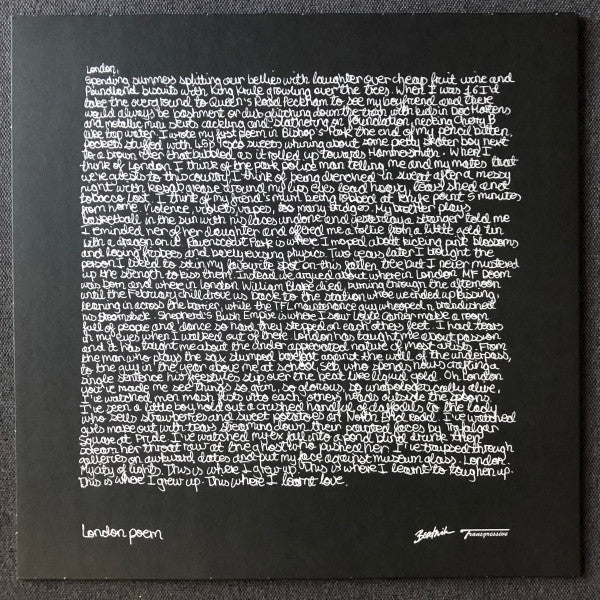 London,
Spending summers splitting our bellies with laughter over cheap fruit wine and
Poundland biscuits with King Krule growling over the trees. When I was 16 I'd
take the overground to Queen's Road Peckham to see my boyfriend and there
would always be bashment or dub glitching down the train with kids in Doc Martens
and metallic mini skirts cackling and slathering on foundation, necking Cherry B
like tap water. I wrote my first poem in Bishop's Park the end of my pencil bitten,
pockets stuffed with 45p Tesco sweets whining about some petty skater boy next
to a brown river that bubbled as it rolled up towards Hammersmith. When I
think of London, I think of the park police man telling me and my mates that
we're a to this country. I think of being drenched in sweat after a messy
night with kebab grease around my lips eyes lead heavy, tears shed and
tobacco lost. I think of my friend's mum being robbed at knife point 5 minutes
from home. Violence, violets, vapes, too many bridges. My brother plays
basketball in the sun with his laces undone and yesterday a stranger told me
I reminded her of her daughter and offered me a rollie from a little gold tin
with a dragon on it. Ravenscourt Park is where I moped about kicking pink blossoms
and losing frisbees and barely revising physics. Two years later I brought the
person I liked to sit in my favourite spot on this fallen tree but I never mustered
up the strength to kiss them. Instead we argued about where in London MF Doom
was born and where in London William Blake died, burning through the afternoon
until the February chill drove us back to the station where we ended up kissing,
leaning in across the barrier while the TFL maintenance guy whooped n brandished
his broomstick. Shepherd's Bush Empire is where I saw Loyle Carner make a room
full of people and dance so hard they stepped on each others feet. I had tears
in my eyes when I walked out of there. London has taught me about passion
and it has taught me about the under appreciated nature of most artists. From
the man who plays the sax slumped barefoot against the wall of the underpass,
to the guy in the year above me at school, Seb, who spends hours crafting a
single sentence his freestyles slip over the beat like liquid gold. Oh London
you've made me see things so open, so glorious, so unapologetically alive,
I've watched men mash fists into each others heads outside the spoons,
I've seen a little boy hold out a crushed handful of daffodils to the lady
who sells strawberries and sweet potatoes on North End Road. I've watched
guys make out with tears streaming down their painted faces by Trafalgar
Square at Pride. I've watched my ex fall into a pond blind drunk then
scream her throat raw at the ghost who pushed her. I've traipsed through
galleries on awkward dates and put my face against museum glass. London.
My city of lights. This is where I grew up. This is where I learnt to toughen up.
This is where I grew up. This where I learnt love.
London poem
Beatnik Transgressive